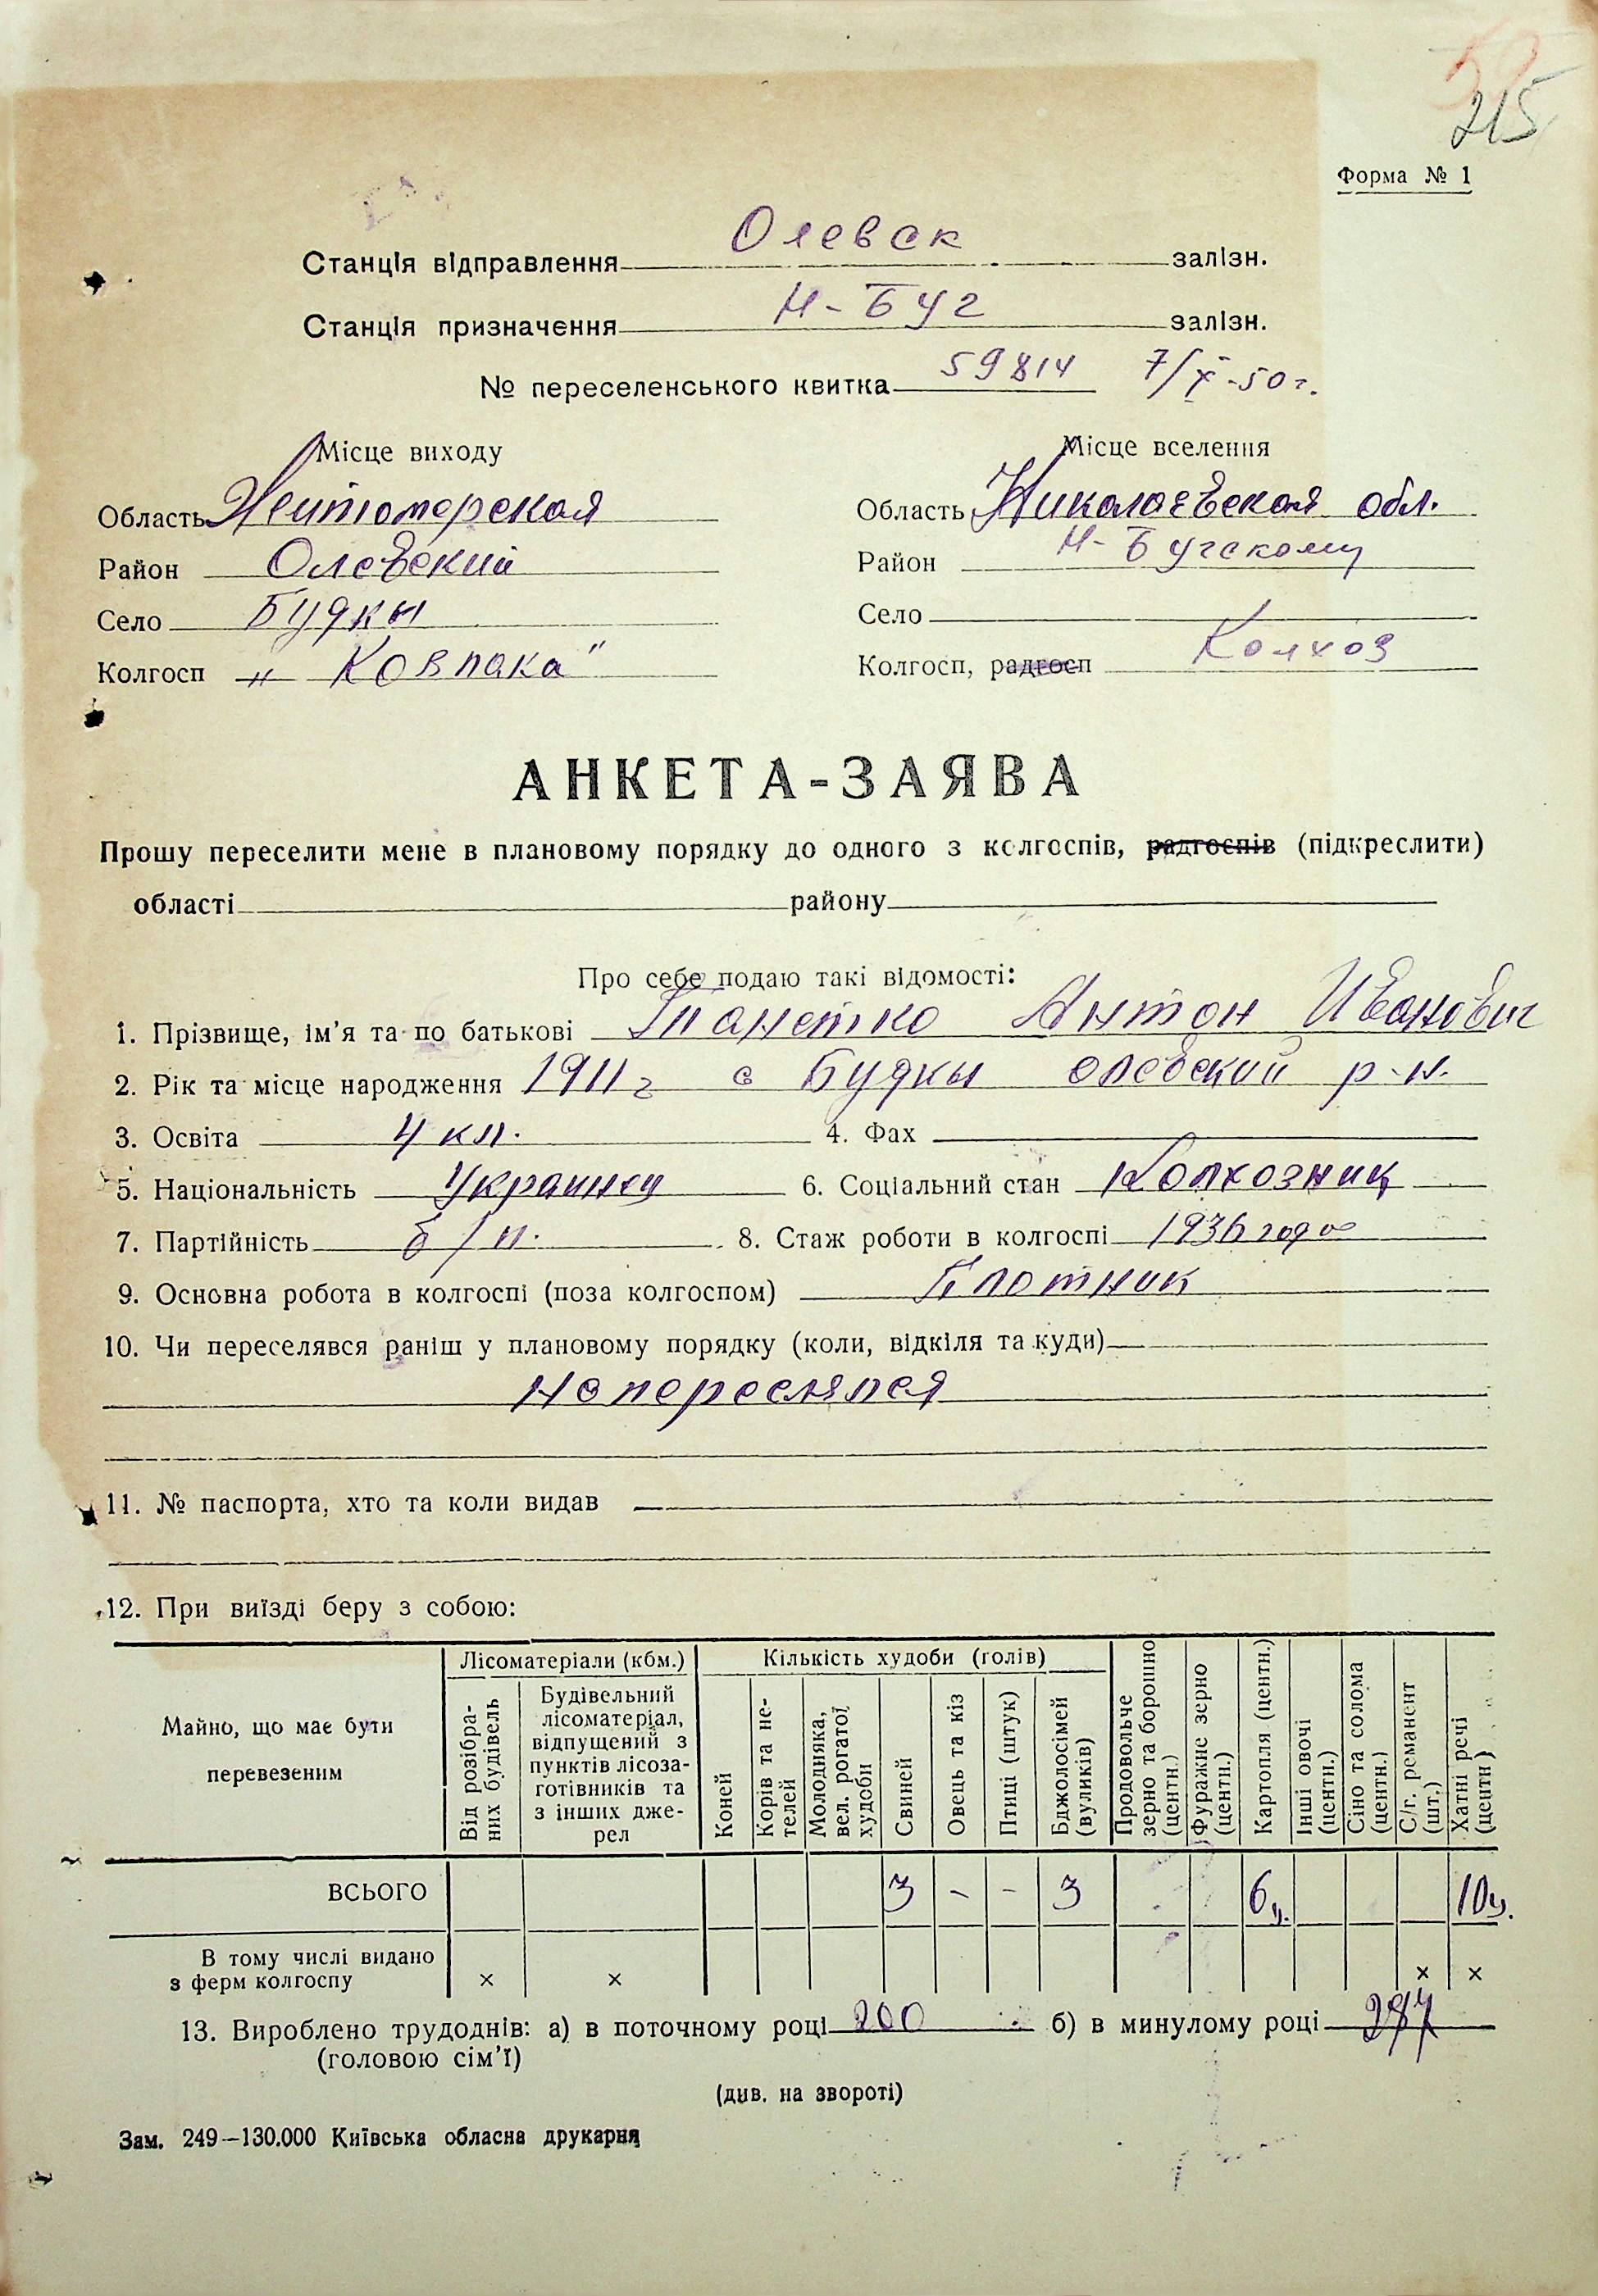 59
215
Форма № 1
Станція відправлення Олевск залізн.
Станція призначення Н-Буг залізн.
№ переселенського квитка 59814 7/X-50г.
Місце виходу Місце вселення
Область Житомерская Область Николаевская обл.
Район Олевский Район Н-Бугскому
Село Будкы Село
Колгосп „Ковпака" Колгосп, радгосп Колхоз
АНКЕТА-ЗАЯВА
Прошу переселити мене в плановому порядку до одного з колгоспів, радгоспів (підкреслити)
області району
Про себе подаю такі відомості:
1. Прізвище, ім'я та по батькові Антон Иванович
2. Рік та місце народження 1911г с Будкы олевский р-н.
3. Освіта 4 кл. 4. Фах
5. Національність Украинец 6. Соціальний стан Колхозник
7. Партійність б/п. 8. Стаж роботи в колгоспі 1936 года
9. Основна робота в колгоспі (поза колгоспом) Плотник
10. Чи переселявся раніш у плановому порядку (коли, відкіля та куди)
непереслялся
11. № паспорта, хто та коли видав
12. При виїзді беру з собою:
Майно, що має бути перевезеним
Лісоматеріали (кбм.)
Від розібраних будівель
Будівельний лісоматеріал, відпущений з пунктів лісозаготівників та з інших джерел
Кількість худоби (голів)
Коней
Корів та нетелей
Молодняка, вел. рогатої худоби
Свиней
Овець та кіз
Птиці (штук)
Бджолосімей (вуликів)
Продовольче зерно та борошно (центн.)
Фуражне зерно (центн.)
Картопля (центн.)
Інші овочі (центн.)
Сіно та солома (центн.)
С/г. реманент (шт.)
Хатні речі (центн)
ВСЬОГО 3 - - 3 6ц. 10ц.
В тому числі видано
з ферм колгоспу × × × ×
13. Вироблено трудоднів: а) в поточному році 200 б) в минулому році
(головою сім'ї)
(див. на звороті)
Зам. 249—130.000 Київська обласна друкарня